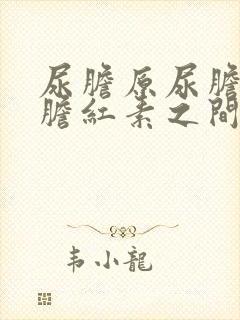 尿膽原尿膽
膽紅素之間
韦小龍